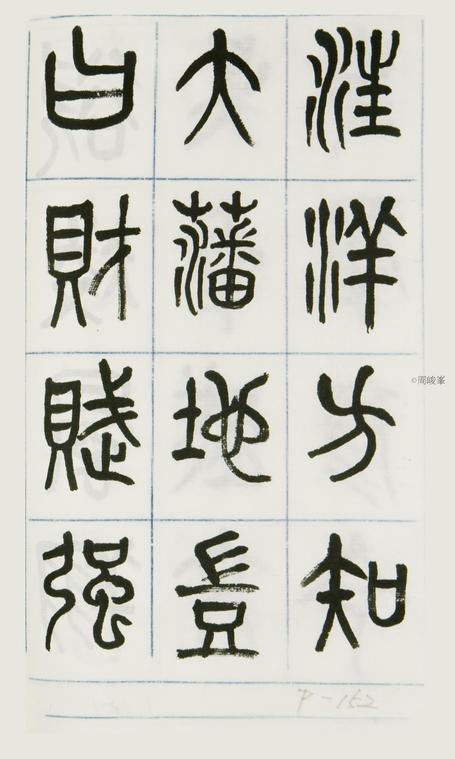 汪洋方知
大藩地豈
曰財賦强
P-152
©周峻峯